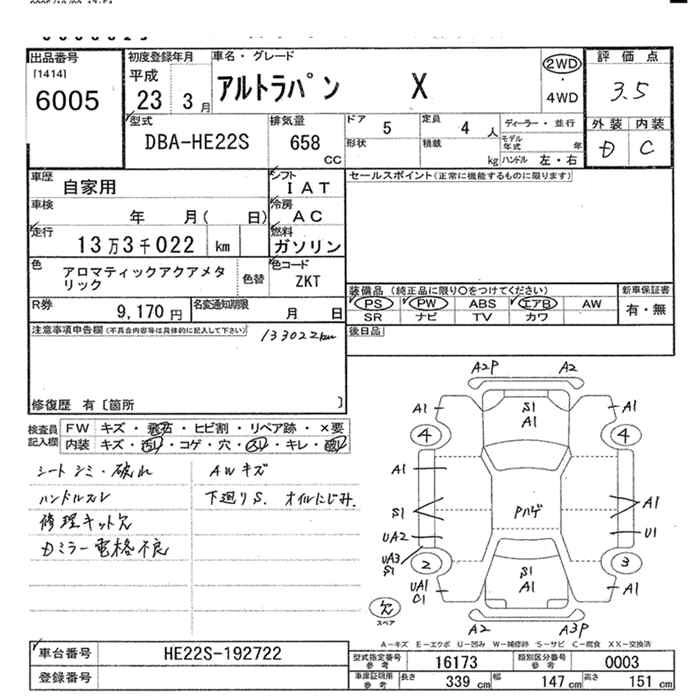 出品番号
[1414]
6005
初度登録年月
平成
23 3月
車名・グレード
アルトラパン X
2WD
・
4WD
評価点
3.5
外装 内装
D C
型式
DBA-HE22S
排気量
658
CC
ドア 5
定員 4 人
形状
積載 kg
ディーラー・並行
モデル年式 年
ハンドル 左・右
車歴 自家用
シフト
IAT
セールスポイント(正常に機能するものに限ります)
車検 年 月( 日)
冷房
AC
走行 13万3千022 km
燃料
ガソリン
色 アロマティックアクアメタリック
色替
色コード
ZKT
装備品(純正品に限り○をつけてください)
PS PW ABS エアB AW
SR ナビ TV カワ
新車保証書
有・無
R券 9,170円
名変通知期限 月 日
後日品
注意事項申告欄(不具合内容等は具体的に記入して下さい)
133022km
修復歴 有〔箇所 〕
検査員記入欄
FW キズ・飛石・ヒビ割・リペア跡・×要
内装 キズ・汚レ・コゲ・穴・スレ・キレ・
シートシミ・破れ AWキズ
ハンドルスレ 下廻りS. オイルにじみ.
修理キット欠
Dミラー電格不良
A2P A2
A1 S1 A1 A1
4 4
A1
S1 Pハゲ A1
UA2 U1
UA3
S1
2 S1 3
UA1 A1 A1
C1
欠
スペア
A2 A3P
A-キズ E-エクボ U-凹み W-補修跡 S-サビ C-腐食 XX-交換済
車台番号 HE22S-192722
登録番号
型式指定番号 参考 16173
類別区分番号 参考 0003
車庫証明用 参考 長さ 339 cm 幅 147 cm 高さ 151 cm